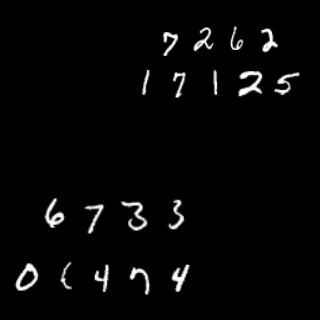 7262
17125
6733
01474